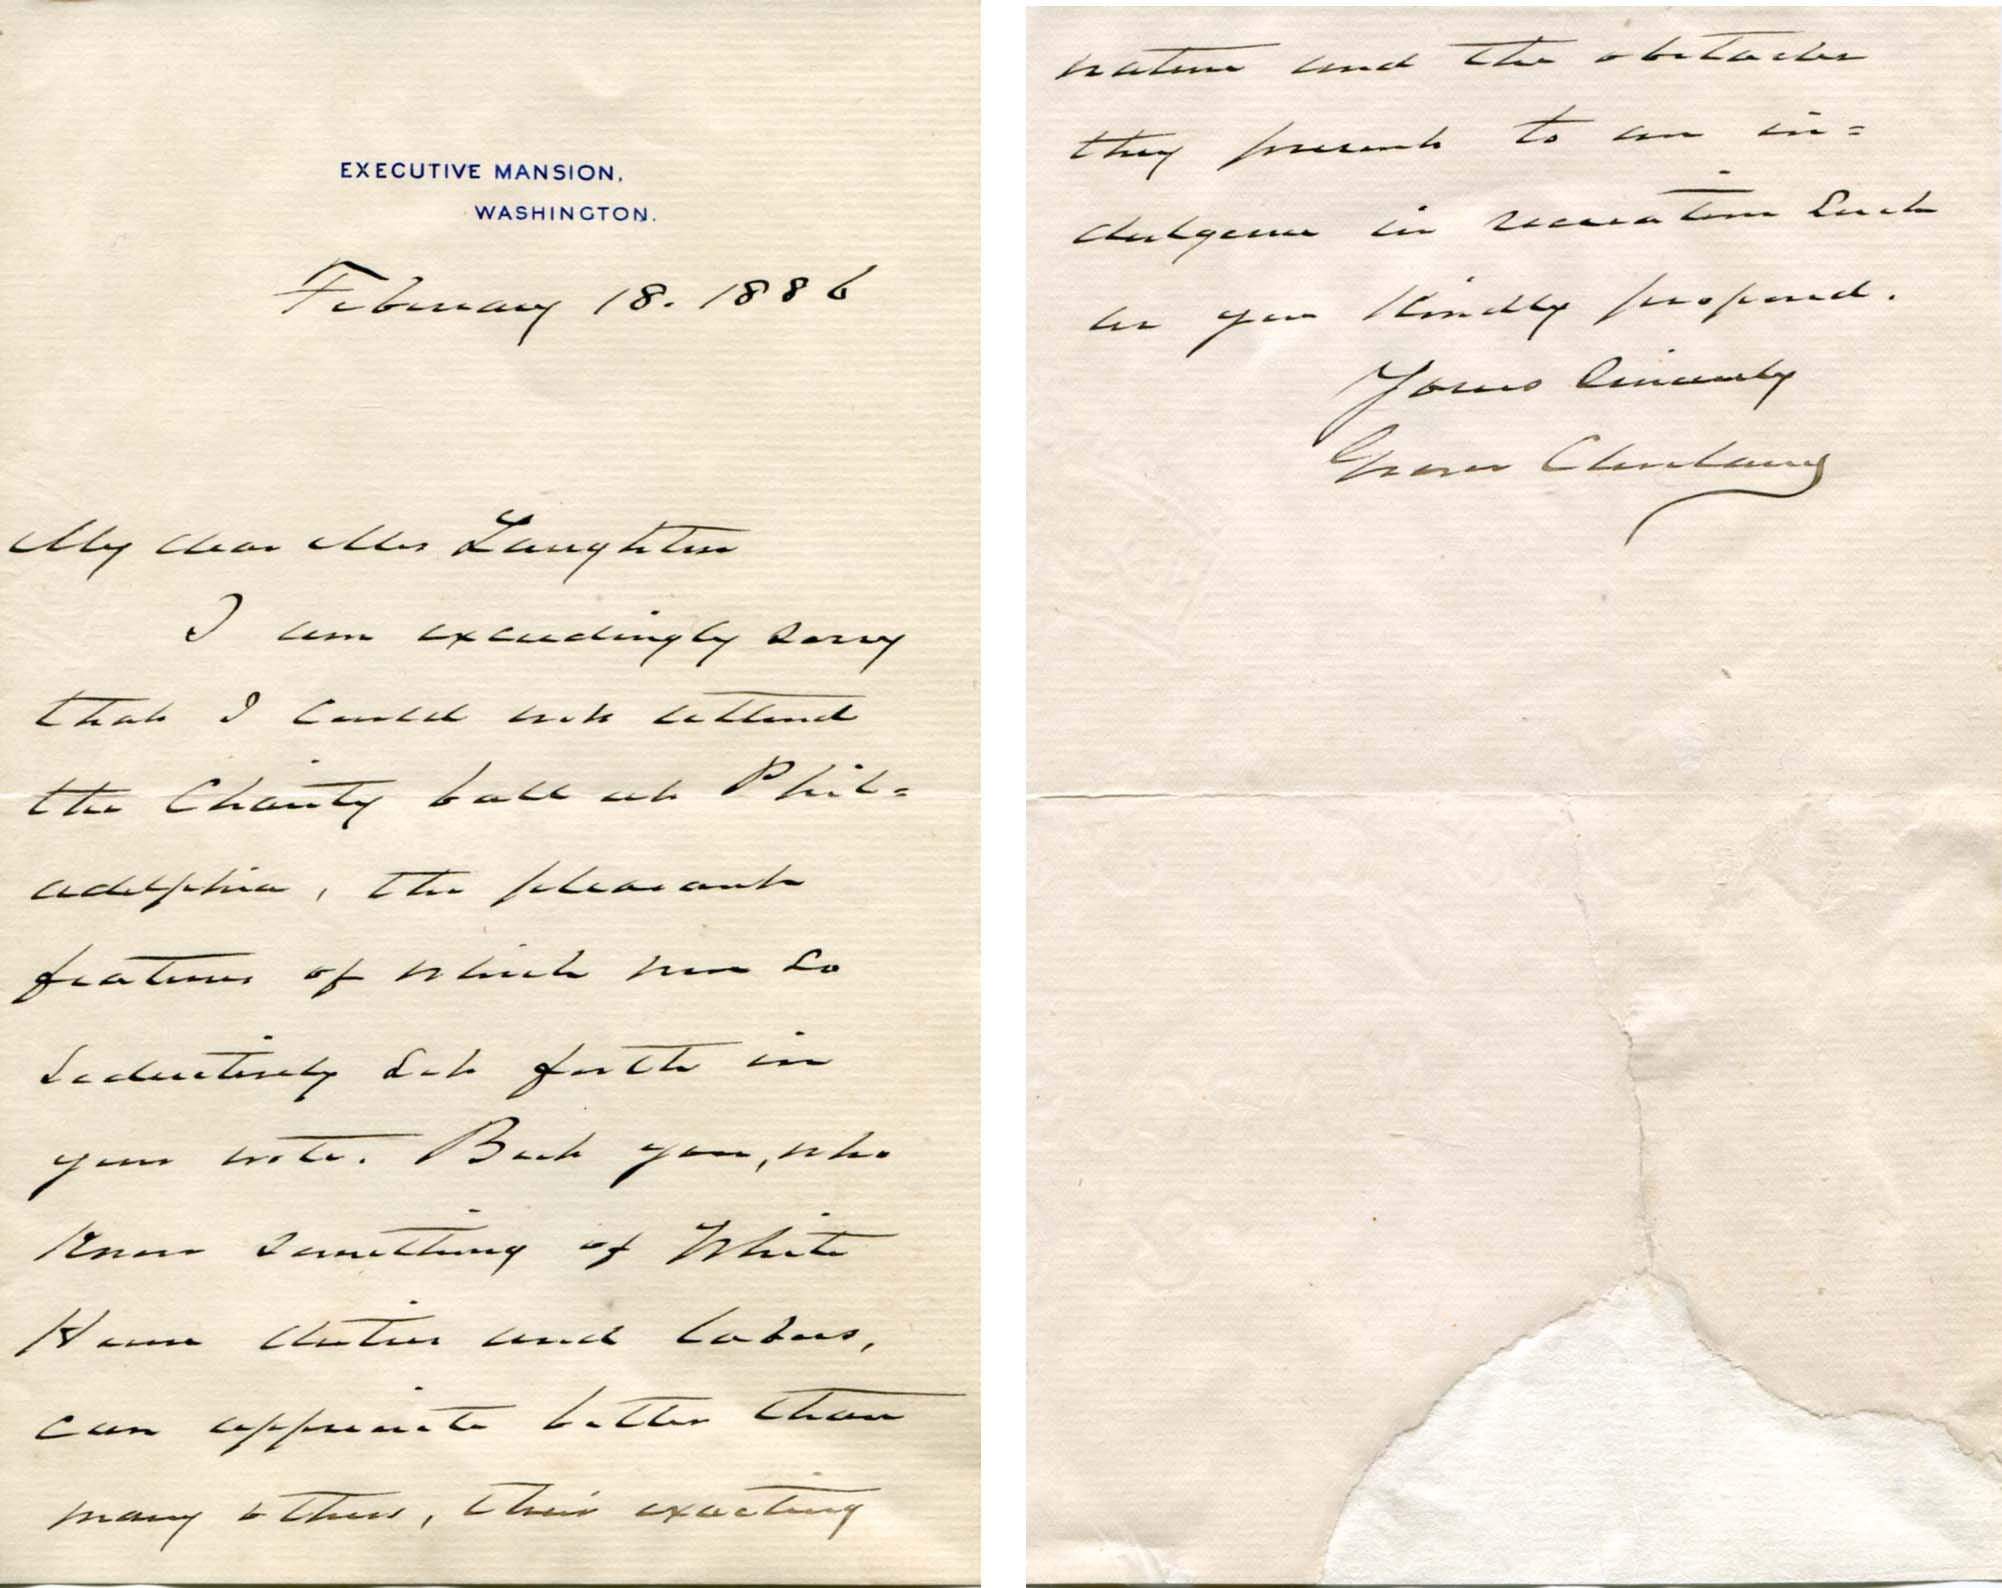 EXECUTIVE MANSION,
WASHINGTON.
February 18. 1886
My dear Mrs Laughton
I am exceedingly sorry
that I could not attend
the Charity ball at Phil=
adelphia, the pleasant
features of which were so
seductively set forth in
your note. But you, who
know something of White
House duties and labors,
can appreciate better than
many others, their exacting
nature and the obstacles
they present to an in=
dulgence in recreation such
as you kindly proposed.
Yours Sincerely
Grover Cleveland